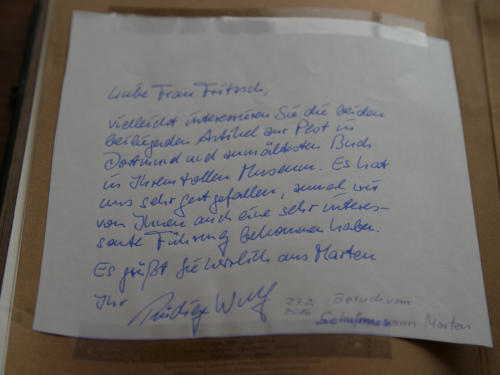 Liebe Frau Fritzsch,
vielleicht interessieren Sie die beiden
beiliegenden Artikel zur Pest in
Dortmund und zum ältesten Buch
in Ihrem tollen Museum. Es hat
uns sehr gut gefallen, zumal wir
von Ihnen auch eine sehr interes-
sante Führung bekommen haben.
Es grüßt Sie herzlich aus Marten
Ihr
23.2.
2016
Besuch vom
Marten